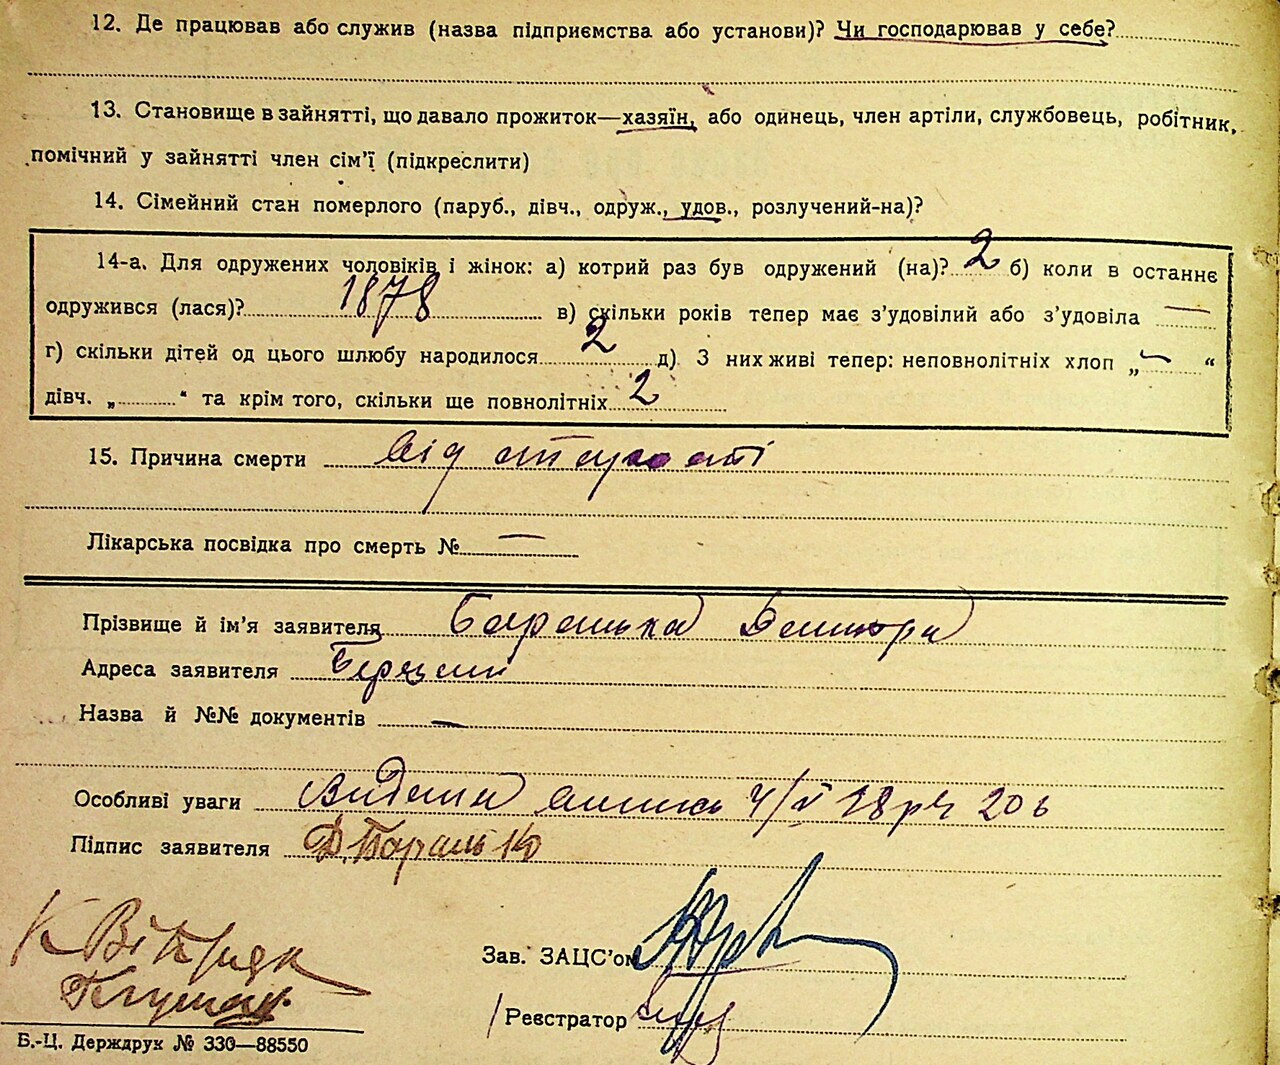 12. Де працював або служив (назва підприємства або установи)? Чи господарював у себе?
13. Становище в зайнятті, що давало прожиток—хазяїн, або одинець, член артіли, службовець, робітник,
помічний у зайнятті член сім'ї (підкреслити)
14. Сімейний стан померлого (паруб., дівч., одруж., удов., розлучений-на)?
14-а. Для одружених чоловіків і жінок: а) котрий раз був одружений (на)? 2 б) коли в останнє
одружився (лася)? 1878 в) скільки років тепер має з'удовілий або з'удовіла —
г) скільки дітей од цього шлюбу народилося 2 д) З них живі тепер: неповнолітніх хлоп „ — “
дівч. „ “ та крім того, скільки ще повнолітніх 2
15. Причина смерти від старості
Лікарська посвідка про смерть № —
Прізвище й ім'я заявителя
Адреса заявителя
Назва й №№ документів —
Особливі уваги 4/V 28р
Підпис заявителя
Зав. ЗАЦС'ом
Реєстратор
Б.-Ц. Держдрук № 330—88550